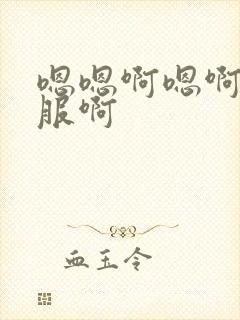 嗯嗯啊嗯啊
服啊
血玉令